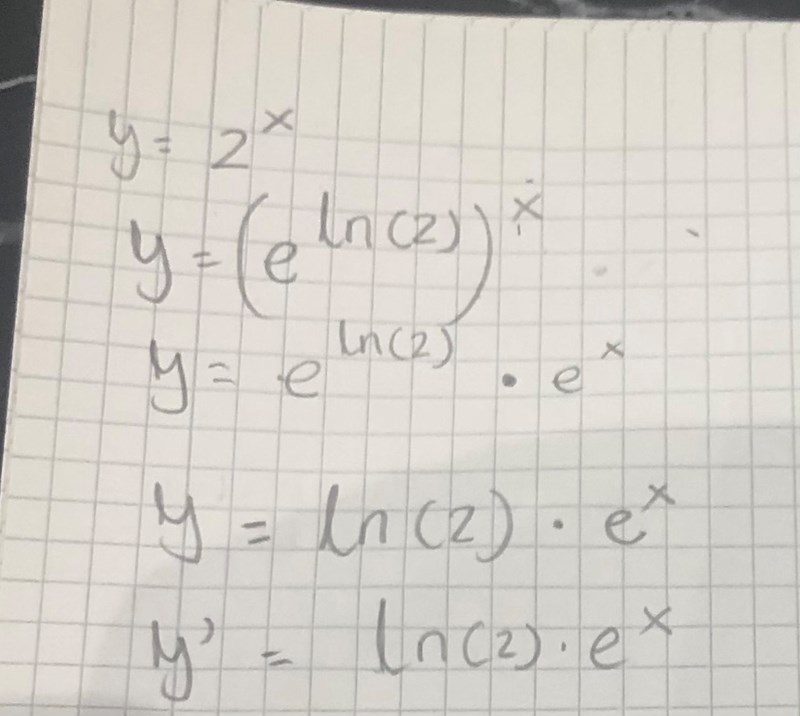 y = 2^x
y = (e^ln(2))^x
y = e^ln(2) · e^x
y = ln(2) · e^x
y' = ln(2) · e^x